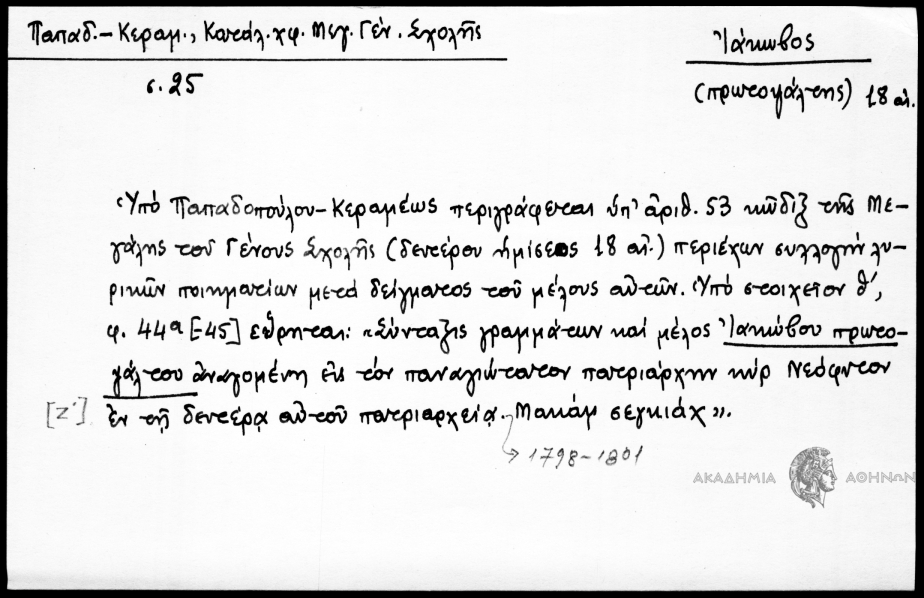 Παπαδ.-Κεραμ., Κατάλ. χφ. Μεγ. Γέν. Σχολῆς
Ἰάκωβος
σ. 25
(πρωτοψάλτης) 18 αἰ.
Ὑπὸ Παπαδοπούλου-Κεραμέως περιγράφεται ὑπ' ἀριθ. 53 κῶδιξ τῆς Με-
γάλης τοῦ Γένους Σχολῆς (δευτέρου ἡμίσεος 18 αἰ.) περιέχων συλλογὴν λυ-
ρικῶν ποιηματίων μετὰ δείγματος τοῦ μέλους αὐτῶν. Ὑπὸ στοιχεῖον θ',
φ. 44α [-45] εὕρηται: «Σύνταξις γραμμάτων καὶ μέλος Ἰακώβου πρωτο-
ψάλτου ἀναγομένη εἰς τὸν παναγιώτατον πατριάρχην κὺρ Νεόφυτον
[Ζ'] ἐν τῇ δευτέρᾳ αὐτοῦ πατριαρχείᾳ. Μακὰμ σεγκιάχ».
1798-1801
ΑΚΑΔΗΜΙΑ ΑΘΗΝΩΝ